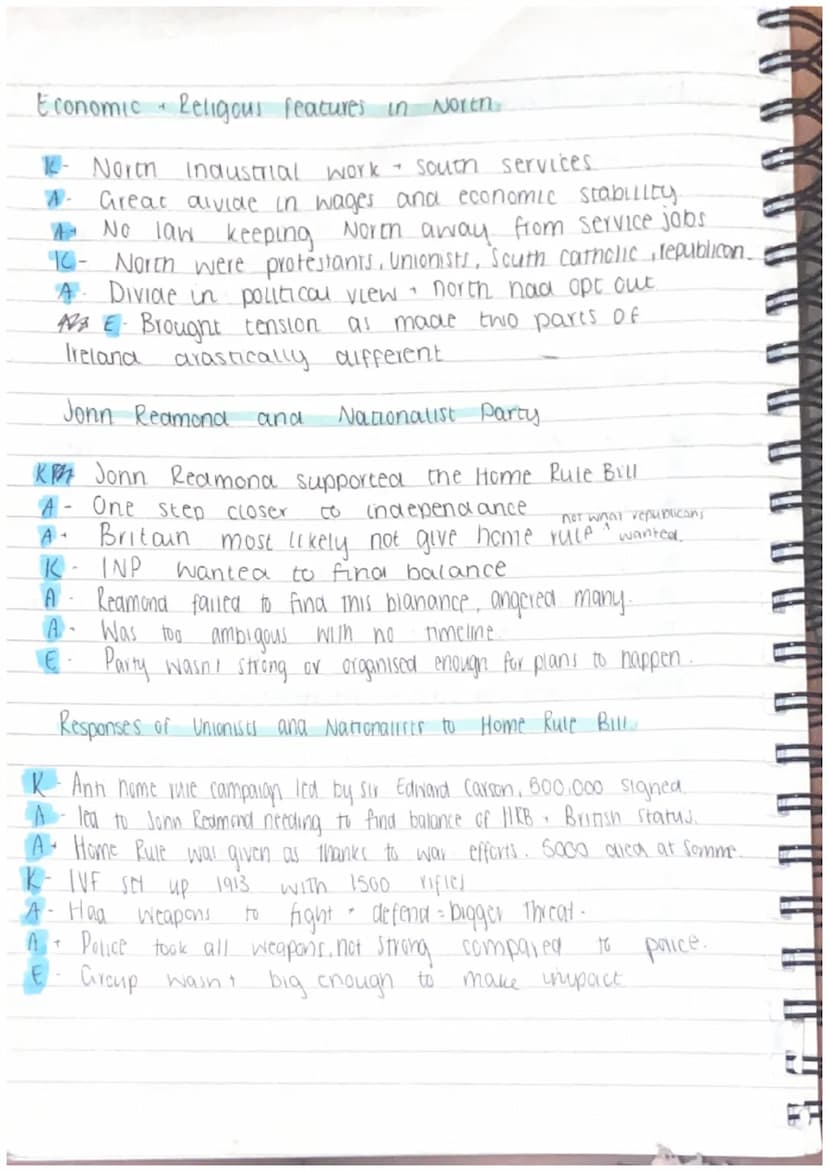 Economic + Religous features in North
K - North industrial work + south services
A - Great divide in wages and economic stability
A+ No law keeping North away from service jobs
K - North were protestants, Unionists, South catholic, republican.
A - Divide in political view + north had opt out
E - Brought tension as made two parts of
Ireland drastically different
John Redmond and Nationalist Party
K John Redmond supported the Home Rule Bill
A - One step closer to independance
not what republicans
A+ Britain most likely not give home rule ^ wanted.
K - INP wanted to find balance
A - Redmond failed to find this blanance, angered many.
A - Was too ambigous with no timeline
E - Party wasnt strong or organised enough for plans to happen.
Responses of Unionists and Nationalists to Home Rule Bill
K - Anti home rule campaign led by Sir Edward Carson, 500,000 signed
A - led to John Redmond needing to find balance of HRB + British status.
A+ Home Rule was given as thanks to war efforts. 5000 died at Somme.
K - IVF set up 1913 with 1500 rifles
A - Had weapons to fight + defend = bigger threat.
A + Police took all weapons, not strong compared to police.
E - Group wasnt big enough to make impact